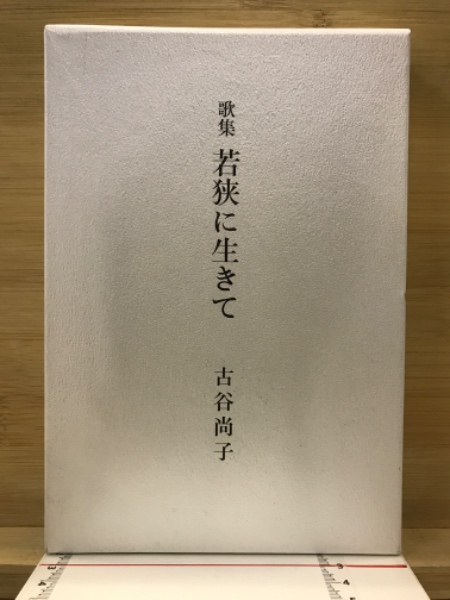 歌集 若狭に生きて
古谷尚子